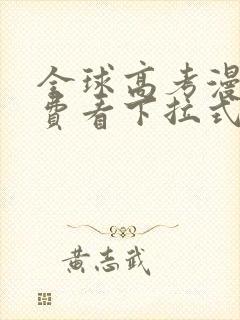 全球高考漫
费看下拉式
黄志武